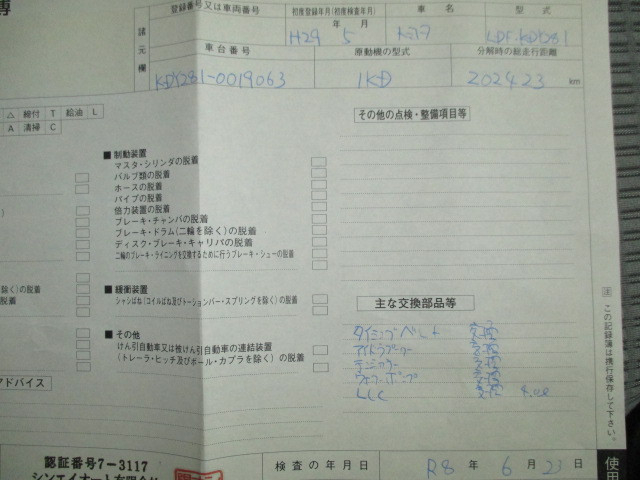 簿
登録番号又は車両番号 初度登録年月(初度検査年月) 車名 型式
諸元欄
年 月
H29 5 トヨタ LDF-KDY281
車台番号 原動機の型式 分解時の総走行距離
KDY281-0019063 1KD 202423 km
△ 締付 T 給油 L
A 清掃 C
その他の点検・整備項目等
■ 制動装置
マスタ・シリンダの脱着
バルブ類の脱着
ホースの脱着
パイプの脱着
倍力装置の脱着
ブレーキ・チャンバの脱着
ブレーキ・ドラム(二輪を除く)の脱着
ディスク・ブレーキ・キャリパの脱着
二輪のブレーキ・ライニングを交換するために行うブレーキ・シューの脱着
除く)の脱着
脱着
■ 緩衝装置
シャシばね(コイルばね及びトーションバー・スプリングを除く)の脱着
■ その他
けん引自動車又は被けん引自動車の連結装置
(トレーラ・ヒッチ及びボール・カプラを除く)の脱着
主な交換部品等
タイミングベルト 交換
アイドラプーリー 交換
テンショナー 交換
ウォーターポンプ 交換
LLC 交換
アドバイス
注 この記録簿は携行保存して下さい。
認証番号7-3117
シンエイオート有限会社
検査の年月日 R8 年 6 月 23 日
使用